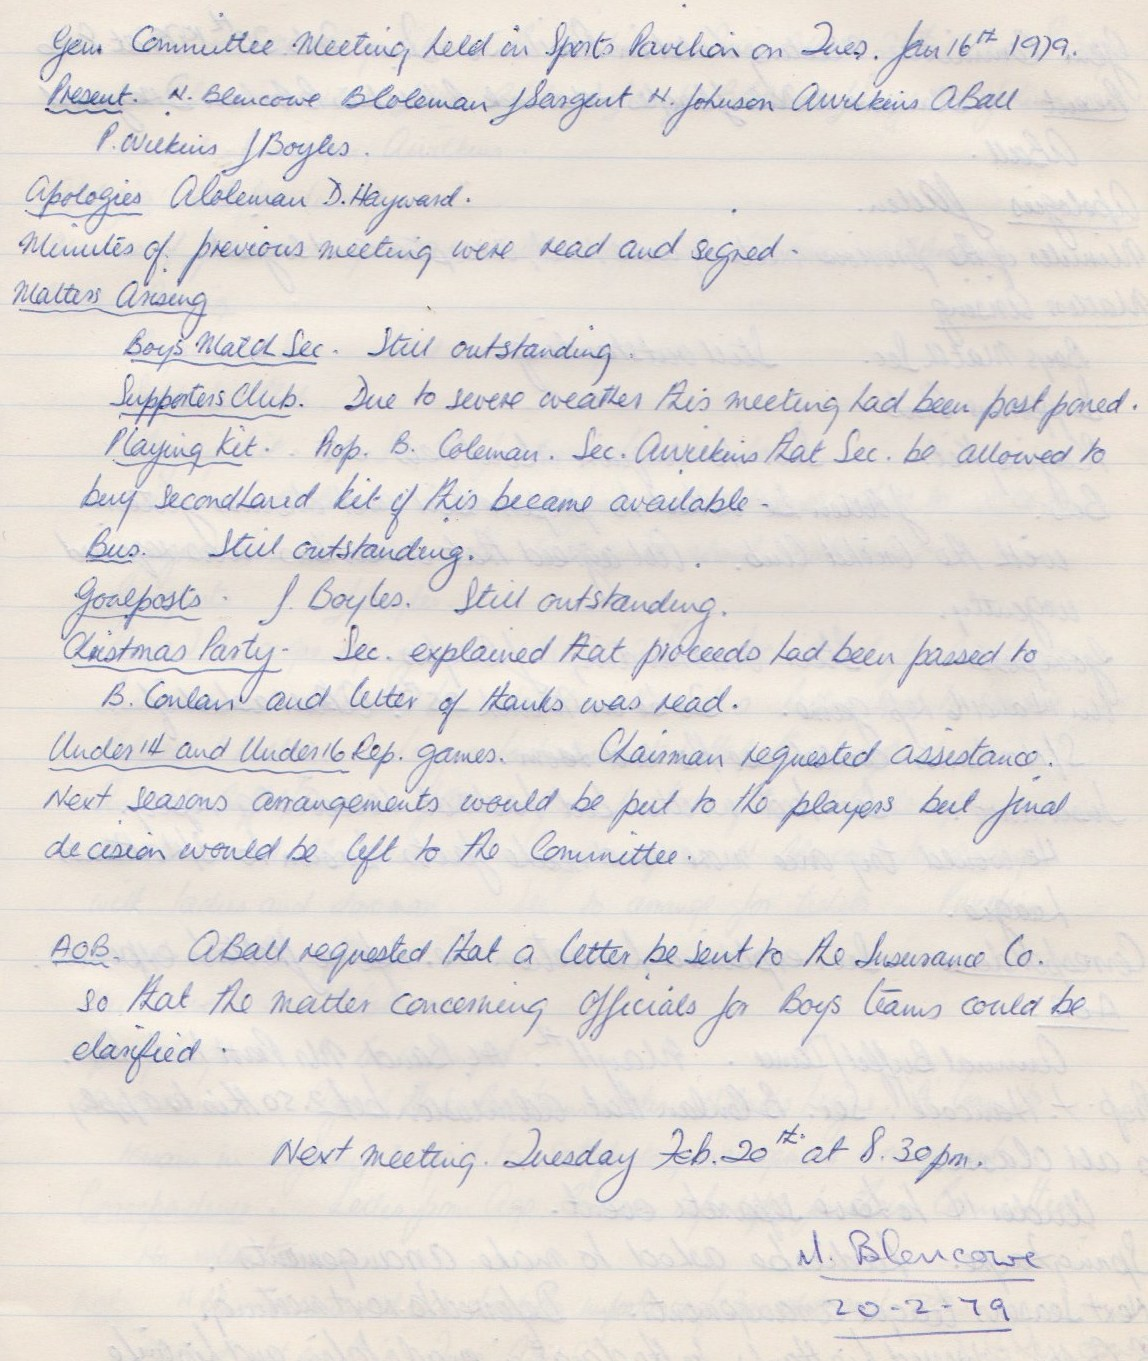 Gen. Committee Meeting held in Sports Pavilion on Tues. Jan 16th 1979.
Present. N. Blencowe B Coleman J Sargent N. Johnson A Wilkins A Ball
P. Wilkins J Boyles.
Apologies A Coleman D. Hayward.
Minutes of previous meeting were read and signed.
Matters Arising
Boys Match Sec. Still outstanding.
Supporters Club. Due to severe weather this meeting had been postponed.
Playing Kit. Prop. B. Coleman. Sec. A Wilkins that Sec. be allowed to
buy secondhand kit if this became available.
Bus. Still outstanding.
Goalposts. J. Boyles. Still outstanding.
Christmas Party - Sec. explained that proceeds had been passed to
B. Conlan and letter of thanks was read.
Under 14 and Under 16 Rep. games. Chairman requested assistance.
Next seasons arrangements would be put to the players but final
decision would be left to the Committee.
AOB. A Ball requested that a letter be sent to the Insurance Co.
so that the matter concerning officials for Boys teams could be
clarified.
Next meeting. Tuesday Feb. 20th at 8.30pm.
N. Blencowe
20-2-79